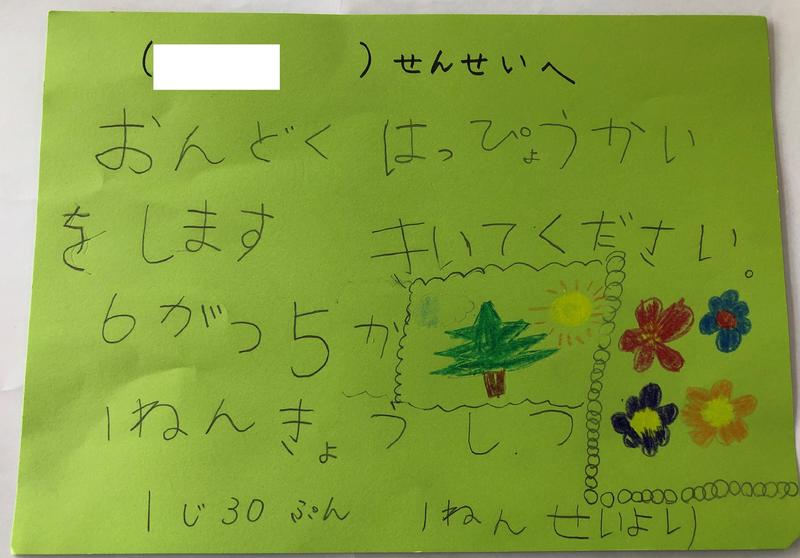 (　　　　) せんせいへ
おんどく はっぴょうかい
をします きいてください。
6がつ5か
1ねんきょうしつ
1じ30ぷん 1ねんせいより